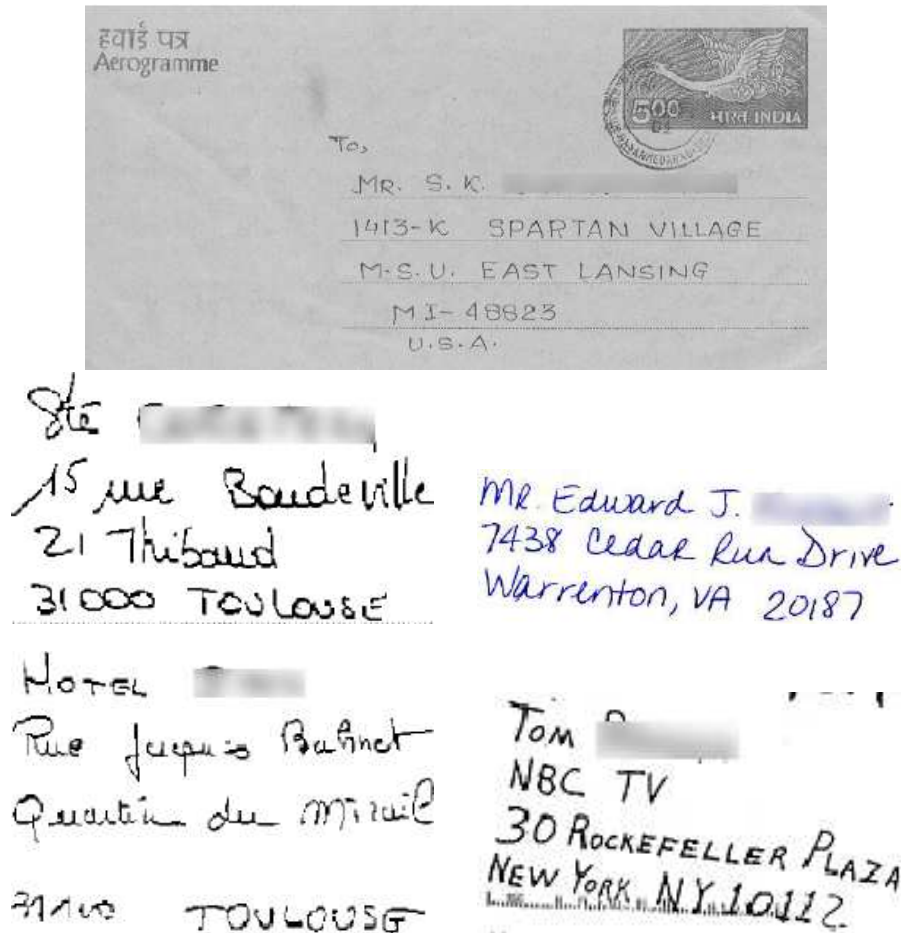 हवाई पत्र
Aerogramme
5.00
भारत INDIA
To,
MR. S. K.
1413-K SPARTAN VILLAGE
M.S.U. EAST LANSING
MI-48823
U.S.A.
Sté
15 rue Baudeville
ZI Thibaud
31000 TOULOUSE
MR. Edward J.
7438 Cedar Run Drive
Warrenton, VA 20187
HOTEL
Rue Jacques Babinet
Quartier du Mirail
31100 TOULOUSE
Tom
NBC TV
30 ROCKEFELLER PLAZA
NEW YORK NY 10112